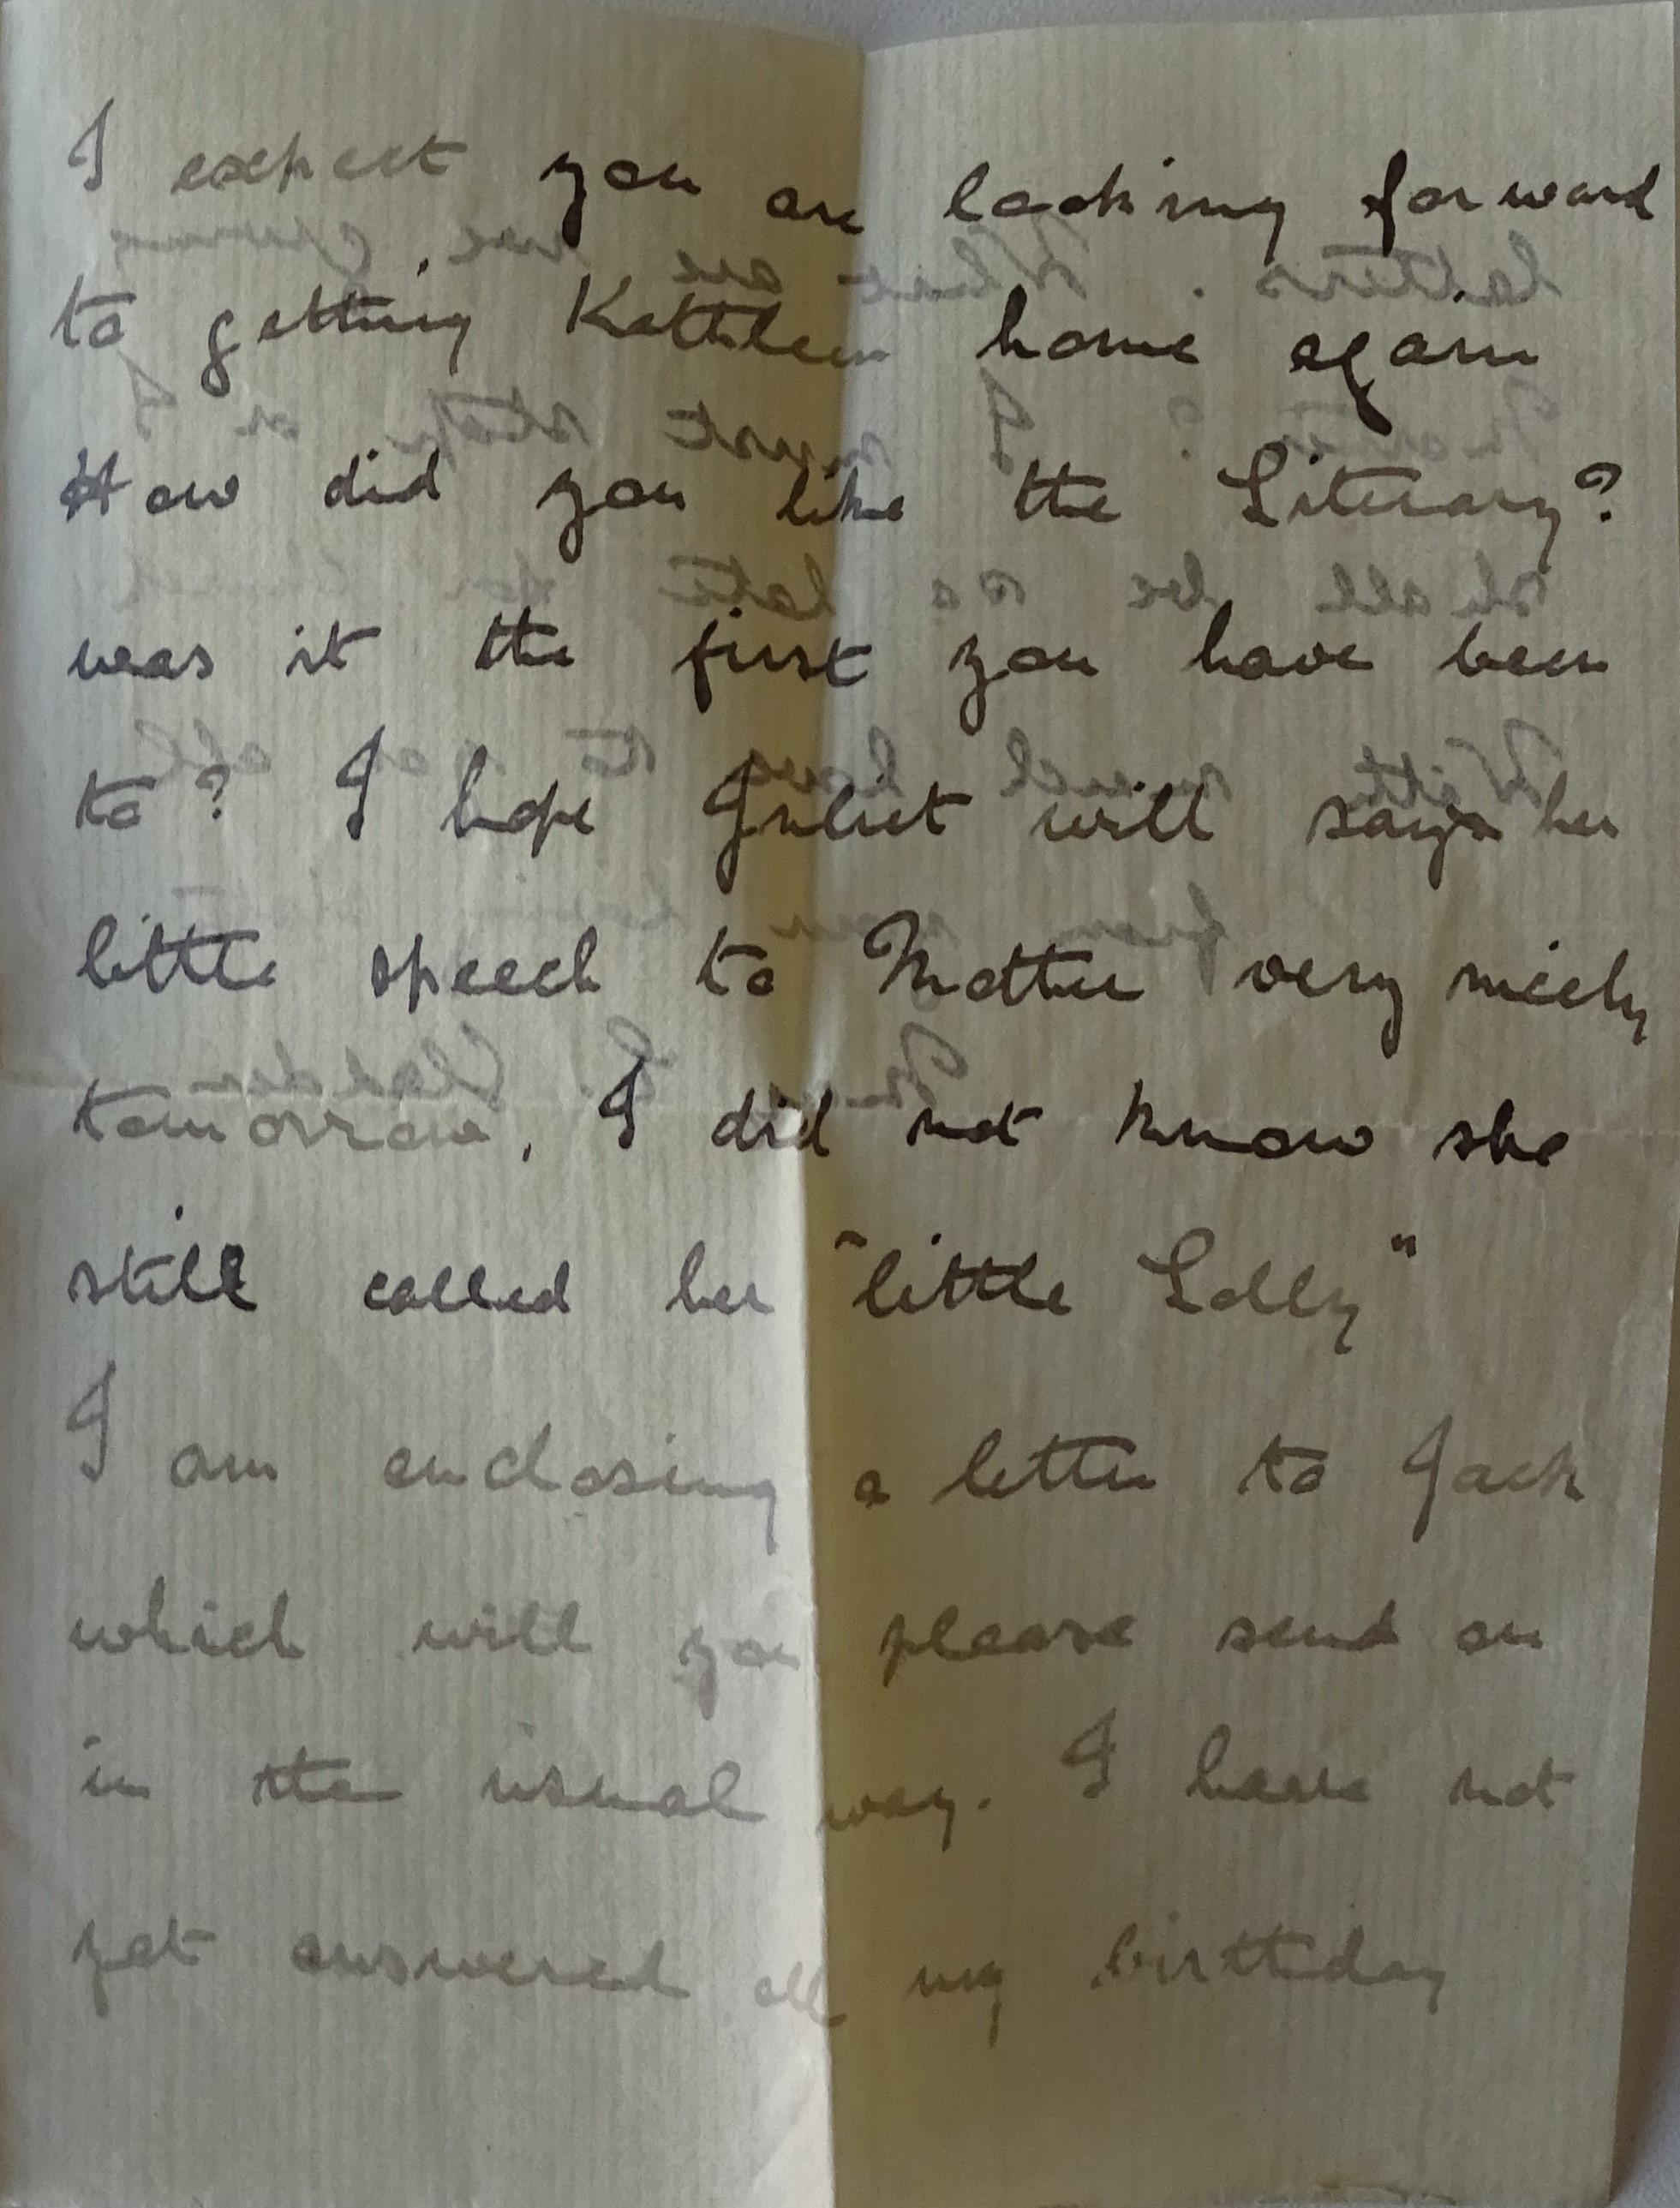 I expect you are looking forward
to getting Kathleen home again
How did you like the Literary?
was it the first you have been
to? I hope Juliet will say her
little speech to Mother very nicely
tomorrow, I did not know she
still called her "little Lolly"
I am enclosing a letter to Jack
which will you please send on
in the usual way. I have not
yet answered all my birthday